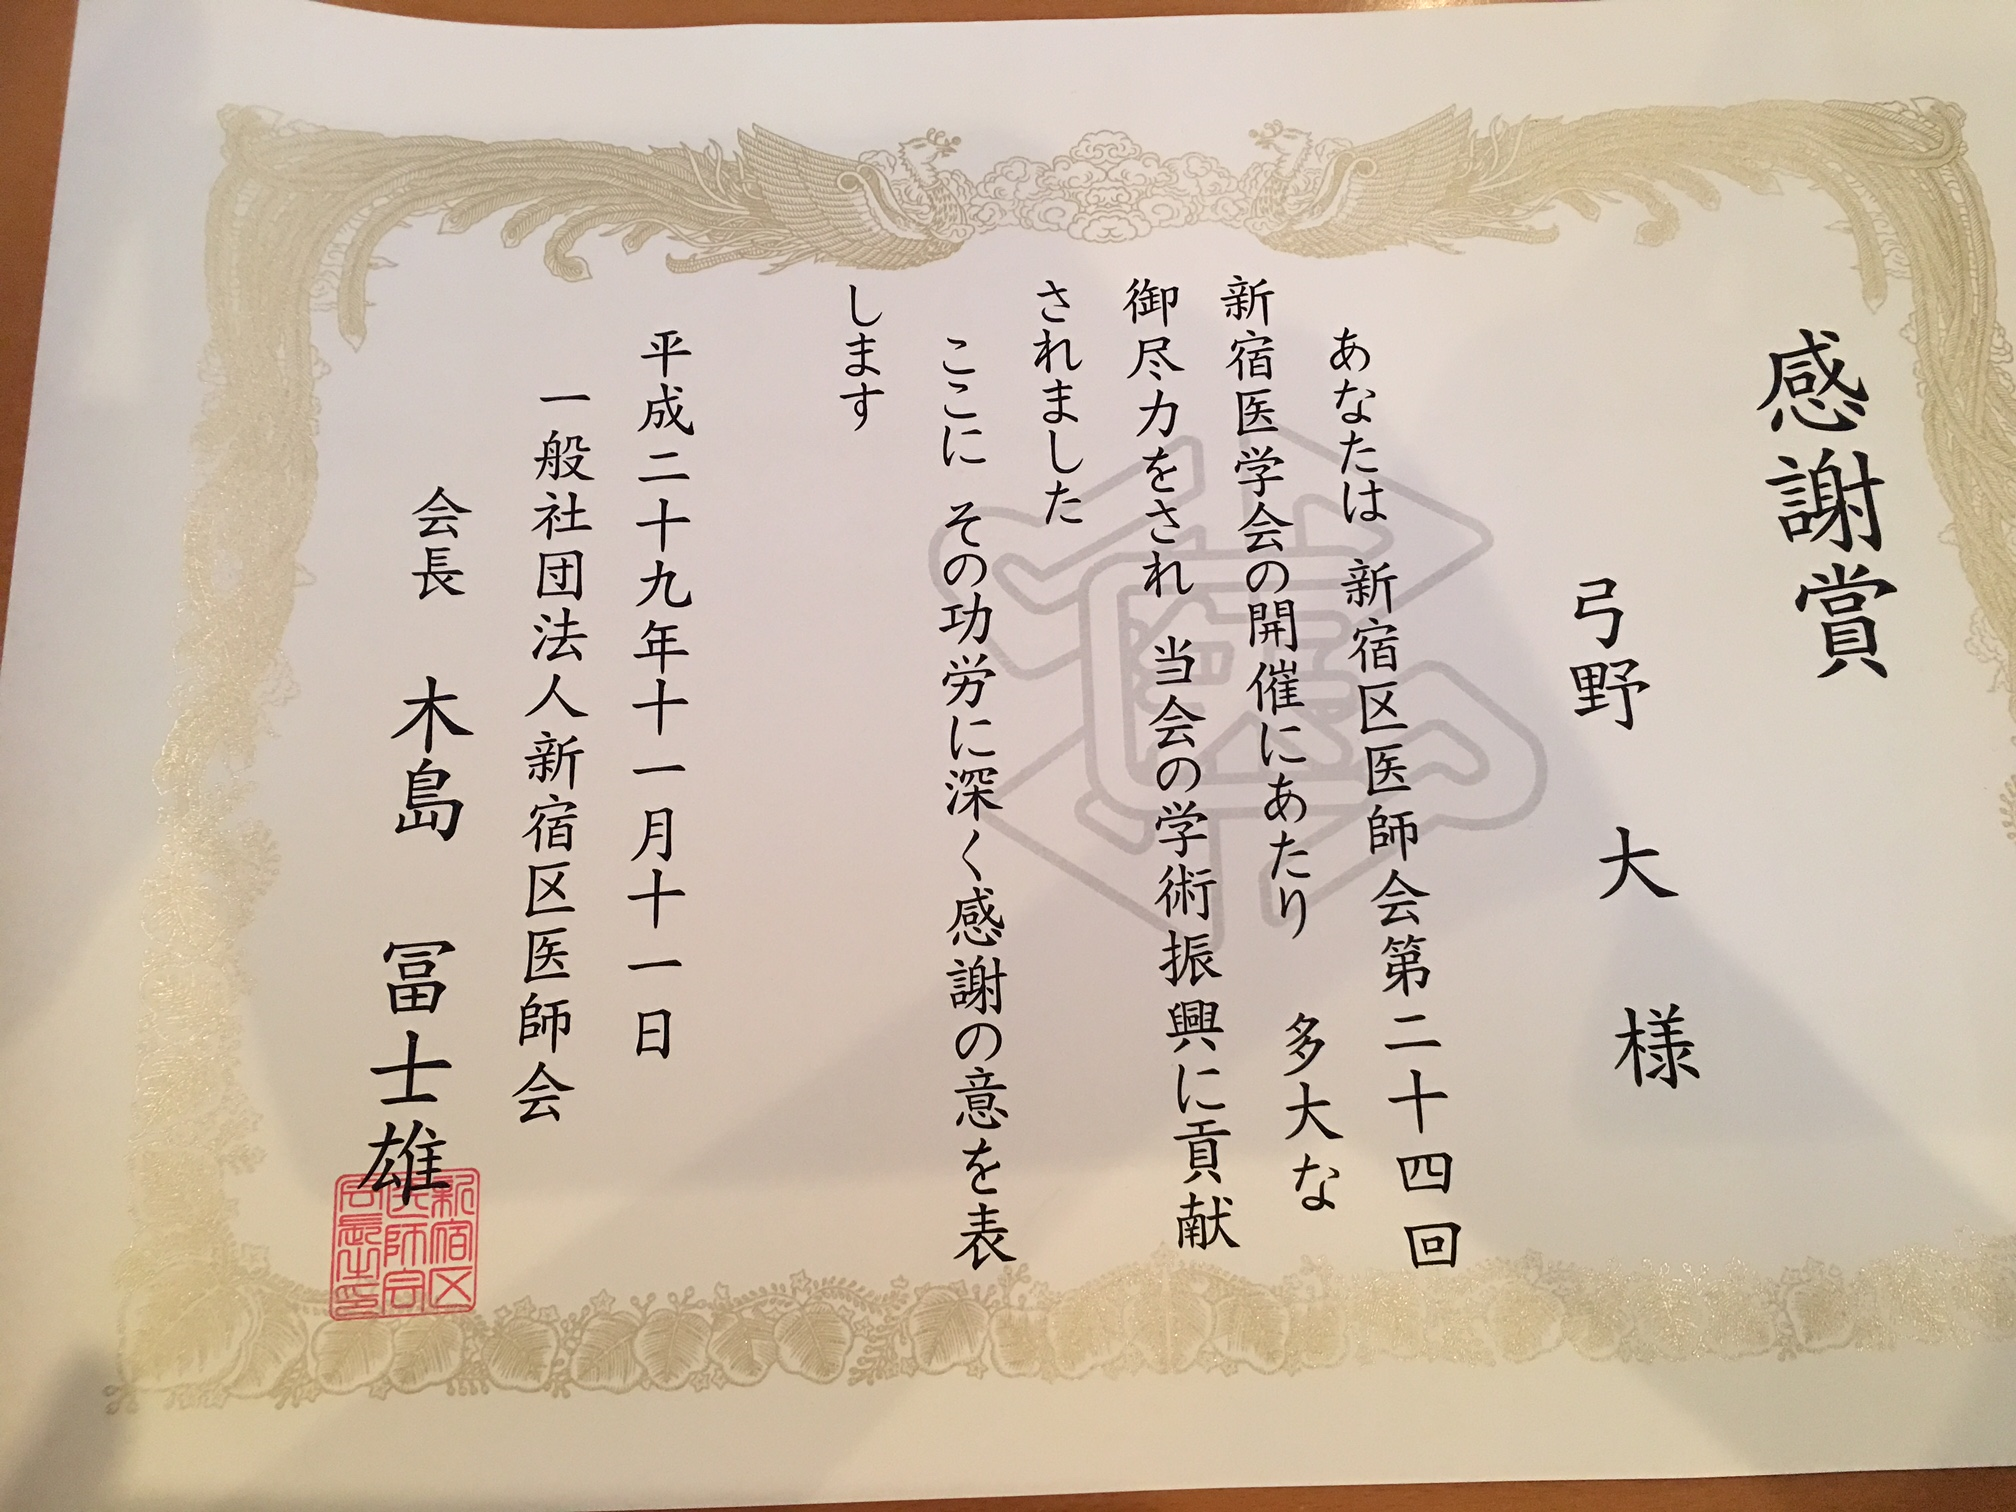 感謝賞
弓野 大 様
あなたは 新宿区医師会第二十四回
新宿医学会の開催にあたり 多大な
御尽力をされ 当会の学術振興に貢献
されました
ここに その功労に深く感謝の意を表
します
平成二十九年十一月十一日
一般社団法人新宿区医師会
会長 木島 冨士雄
新宿区
医師会
会長之印